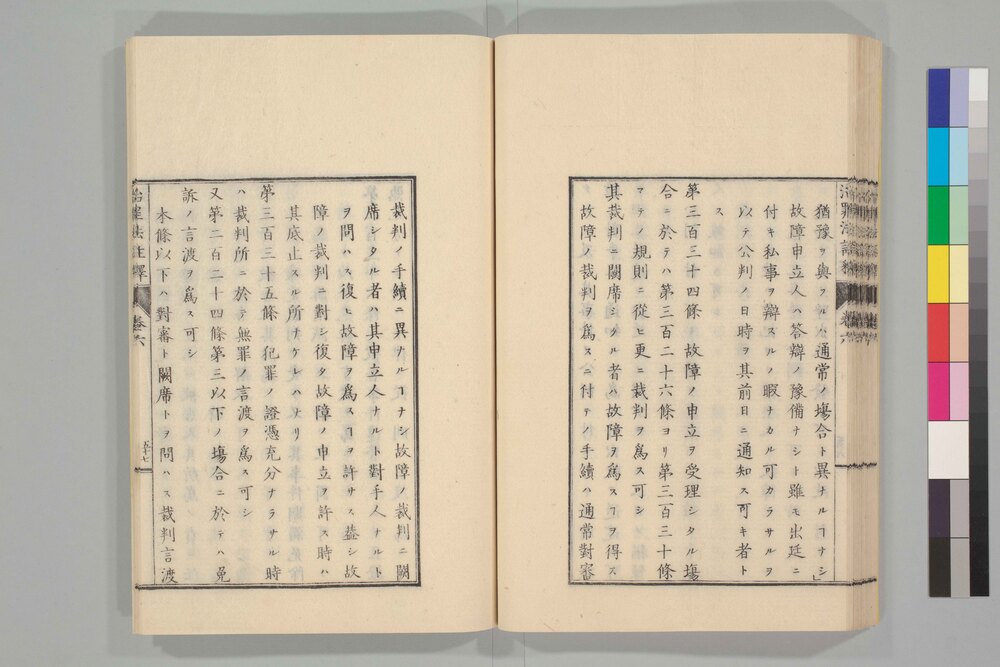 猶豫ヲ與フルハ通常ノ塲合ト異ナルヿナシ」
故障申立人ハ答辯ノ豫備ナシト雖モ出廷ニ
付キ私事ヲ辯スルノ暇ナカル可カラサルヲ
以テ公判ノ日時ヲ其前日ニ通知ス可キ者ト
ス
第三百三十四條 故障ノ申立ヲ受理シタル塲
合ニ於テハ第三百二十六條ヨリ第三百三十條
マテノ規則ニ從ヒ更ニ裁判ヲ爲ス可シ
其裁判ニ闕席シタル者ハ故障ヲ爲スヿヲ得ス
故障ノ裁判ヲ爲スニ付テノ手續ハ通常對審
裁判ノ手續ニ異ナルヿナシ故障ノ裁判ニ闕
席シタル者ハ其申立人ナルト對手人ナルト
ヲ問ハス復ヒ故障ヲ爲スヿヲ許サス蓋シ故
障ノ裁判ニ對シ復タ故障ノ申立ヲ許ス時ハ
其底止スル所ナケレハナリ
第三百三十五條 犯罪ノ證憑充分ナラサル時
ハ裁判所ニ於テ無罪ノ言渡ヲ爲ス可シ
又第二百二十四條第三以下ノ塲合ニ於テハ免
訴ノ言渡ヲ爲ス可シ
本條以下ハ對審ト闕席トヲ問ハス裁判言渡
治罪法註釋 卷六 五十七